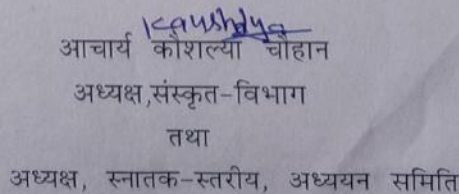 Kaushalya
आचार्य कौशल्या चौहान
अध्यक्ष,संस्कृत-विभाग
तथा
अध्यक्ष, स्नातक-स्तरीय, अध्ययन समिति